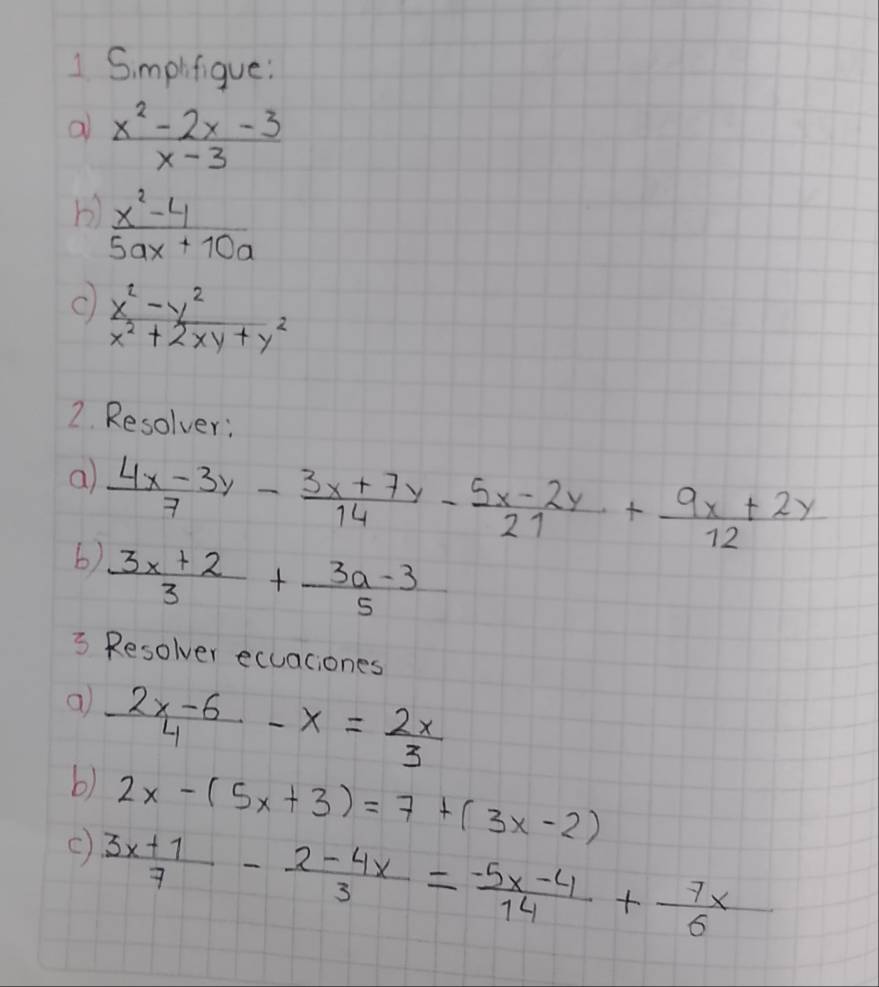 1 Simplifique:
a) x² - 2x - 3 / x - 3
b) x² - 4 / 5ax + 10a
c) x² - y² / x² + 2xy + y²
2. Resolver:
a) 4x - 3y / 7 - 3x + 7y / 14 - 5x - 2y / 21 + 9x + 2y / 12
b) 3x + 2 / 3 + 3a - 3 / 5
3 Resolver ecuaciones
a) 2x - 6 / 4 - x = 2x / 3
b) 2x - (5x + 3) = 7 + (3x - 2)
c) 3x + 1 / 7 - 2 - 4x / 3 = -5x - 4 / 14 + 7x / 6